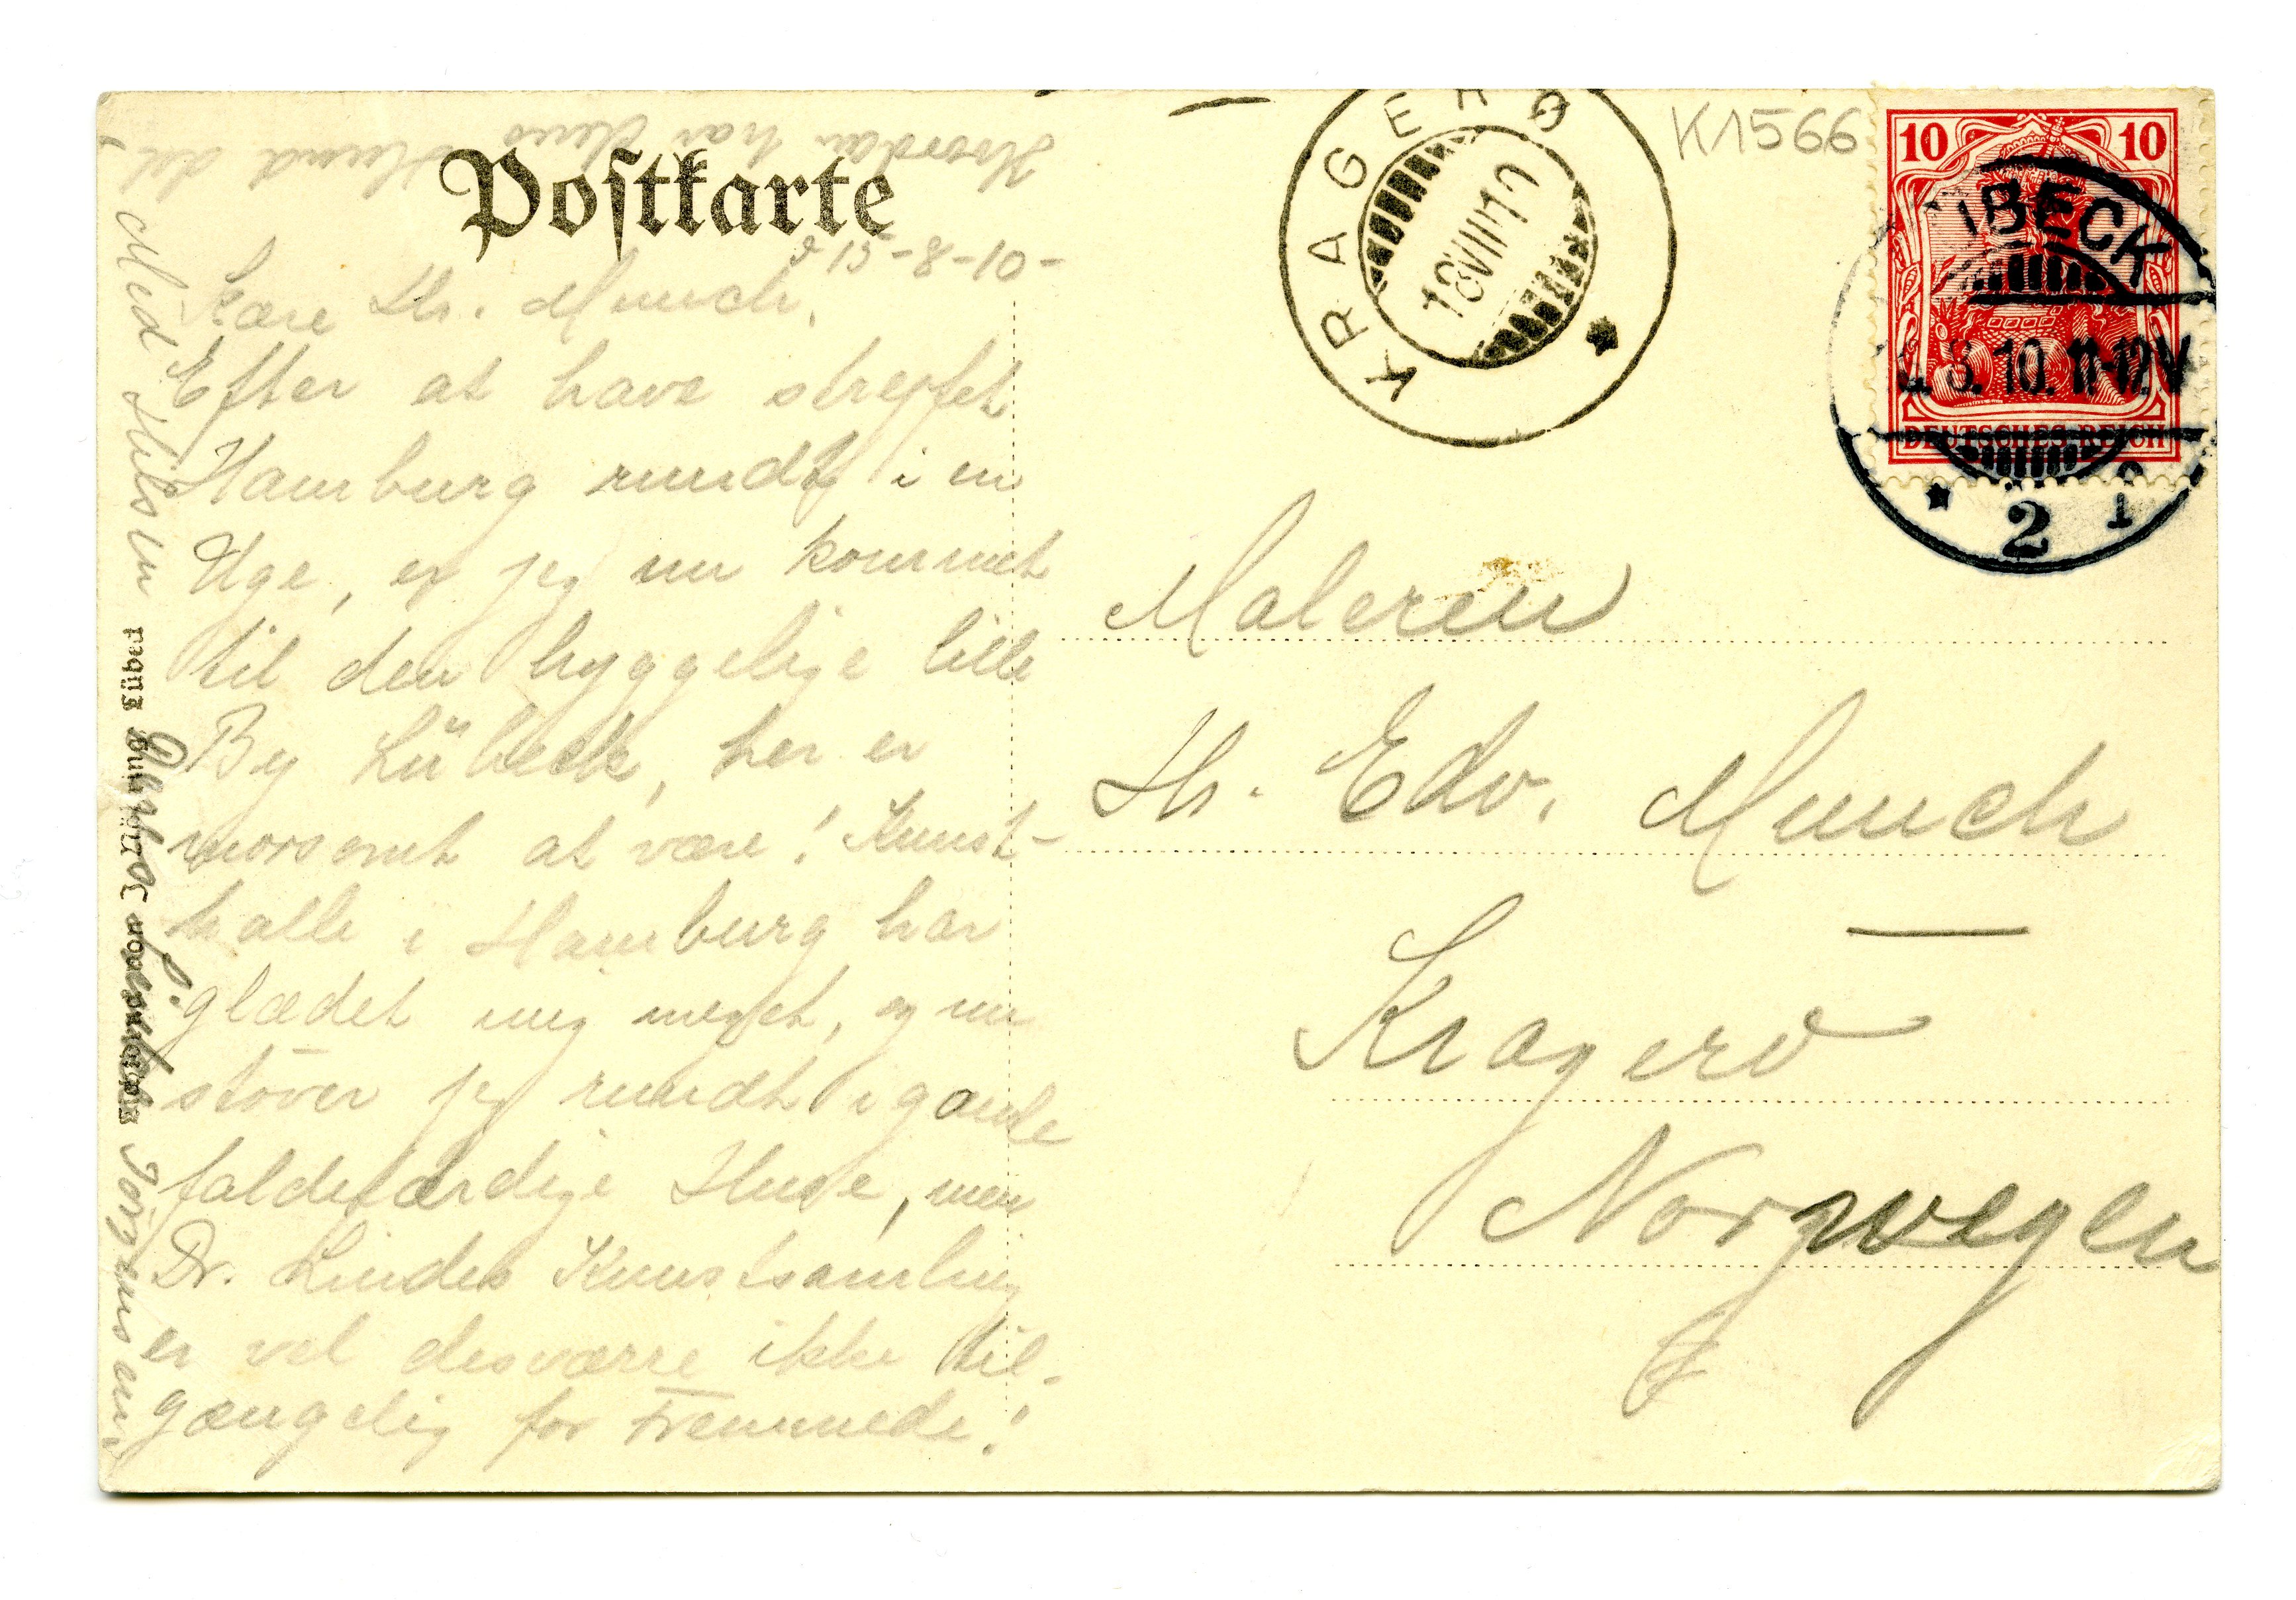 Postkarte
d 15-8-10-
Kære Hr. Munch.
Efter at have strejfet
Hamburg rundt i en
Uge, er jeg nu kommet
til den hyggelige lille
By Lübeck, her er
morsomt at være! Kunst-
halle i Hamburg har
glædet mig meget, og nu
støver jeg rundt i gamle
faldefærdige Huse, men
Dr. Lindes Kunstsamling
er vel desværre ikke til-
gængelig for Fremmede!
Hvordan har Deres Hund det
Med Hilsen
Jørgensen
Lübeck
KRAGERØ
18 VIII 10
K1566
10 10
DEUTSCHES REICH
LÜBECK
8.10.11-12.V
* 2
Maleren
Hr. Edv. Munch
Kragerø
Norwegen